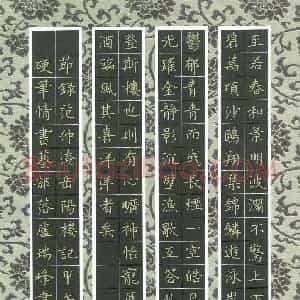 至若春和景明波瀾不驚上
碧萬頃沙鷗翔集錦鱗遊泳
鬱郁青青而或長煙一空皓
光躍金靜影沉璧漁歌互答
登斯樓也則有心曠神怡寵
酒臨風其喜洋洋者矣
節錄范仲淹岳陽樓記甲午
硬筆情書法部落盧瑞峰書